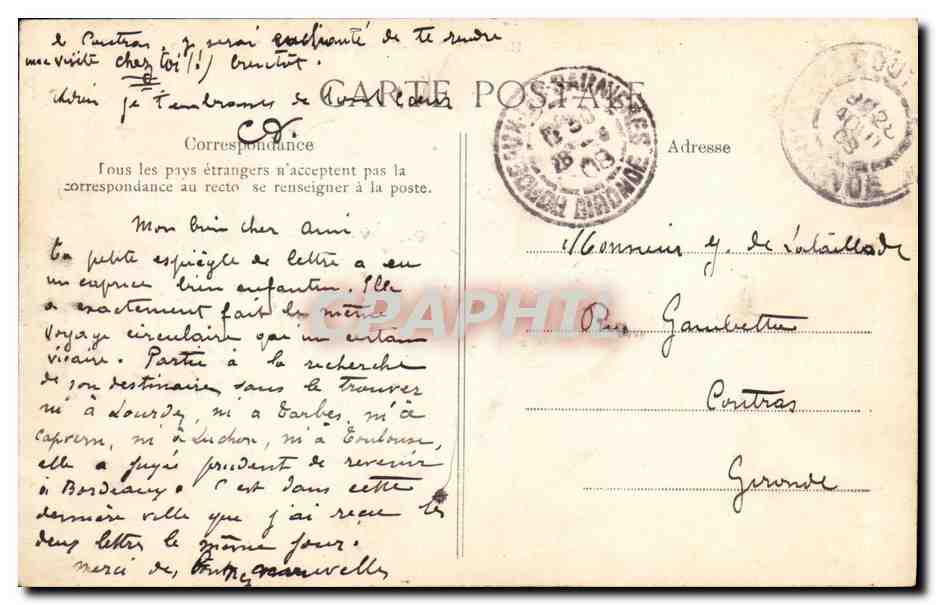 de Coutras, j'y serai enchanté de te rendre
une visite chez toi (!) bientôt.
Adieu je t'embrasse de tout cœur
CARTE POSTALE
Correspondance
Tous les pays étrangers n'acceptent pas la
correspondance au recto se renseigner à la poste.
Adresse
Mon bien cher ami
Ta petite espiègle de lettre a eu
un caprice bien enfantin. Elle
a exactement fait le même
voyage circulaire que un certain
vicaire. Partie à la recherche
de son destinaire sans le trouver
ni à Lourdes, ni à Tarbes, ni à
Capvern, ni à Luchon, ni à Toulouse,
elle a jugée prudent de revenir
à Bordeaux. C'est dans cette
dernière ville que j'ai reçu les
deux lettres le même jour.
Merci de nouvelles
Monsieur J. de Lataillade
Rue Gambetta
Coutras
Gironde
GIRONDE
CPAPHIL